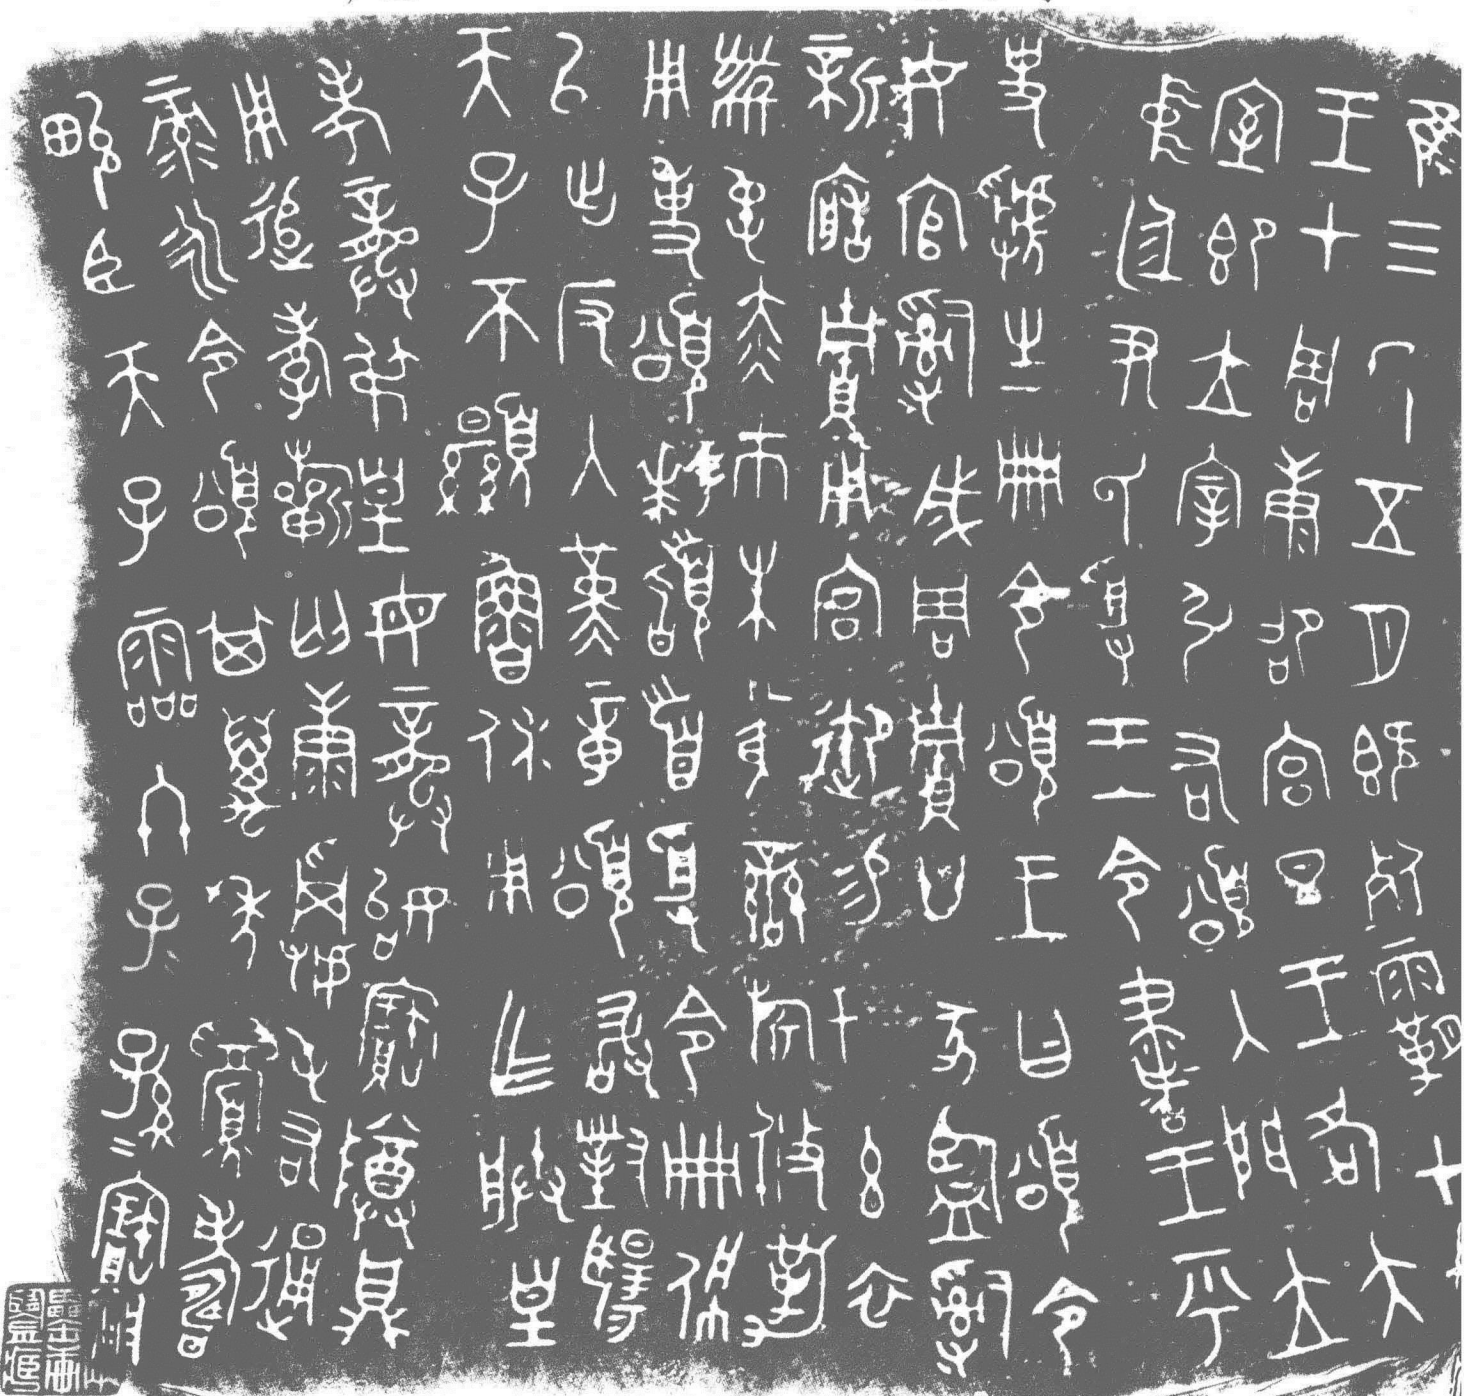 隹三年五月既死霸甲戌
王才周康卲宮旦王各大
室即立宰引右頌入門立
中廷尹氏受王令書王乎
史虢生冊令頌王曰頌令
女官𤔲成周貯廿家監𤔲
新造貯用宮御易女玄衣
黹屯赤巿朱黃鑾旂攸勒
用事頌拜稽首受令冊佩
以出反入堇章頌敢對揚
天子不顯魯休用乍朕皇
考龏叔皇母龏始寶尊鼎
用追孝祈匄康𩛥屯右通
彔永令頌其萬年眉壽
畯臣天子霝冬子孫=寶用